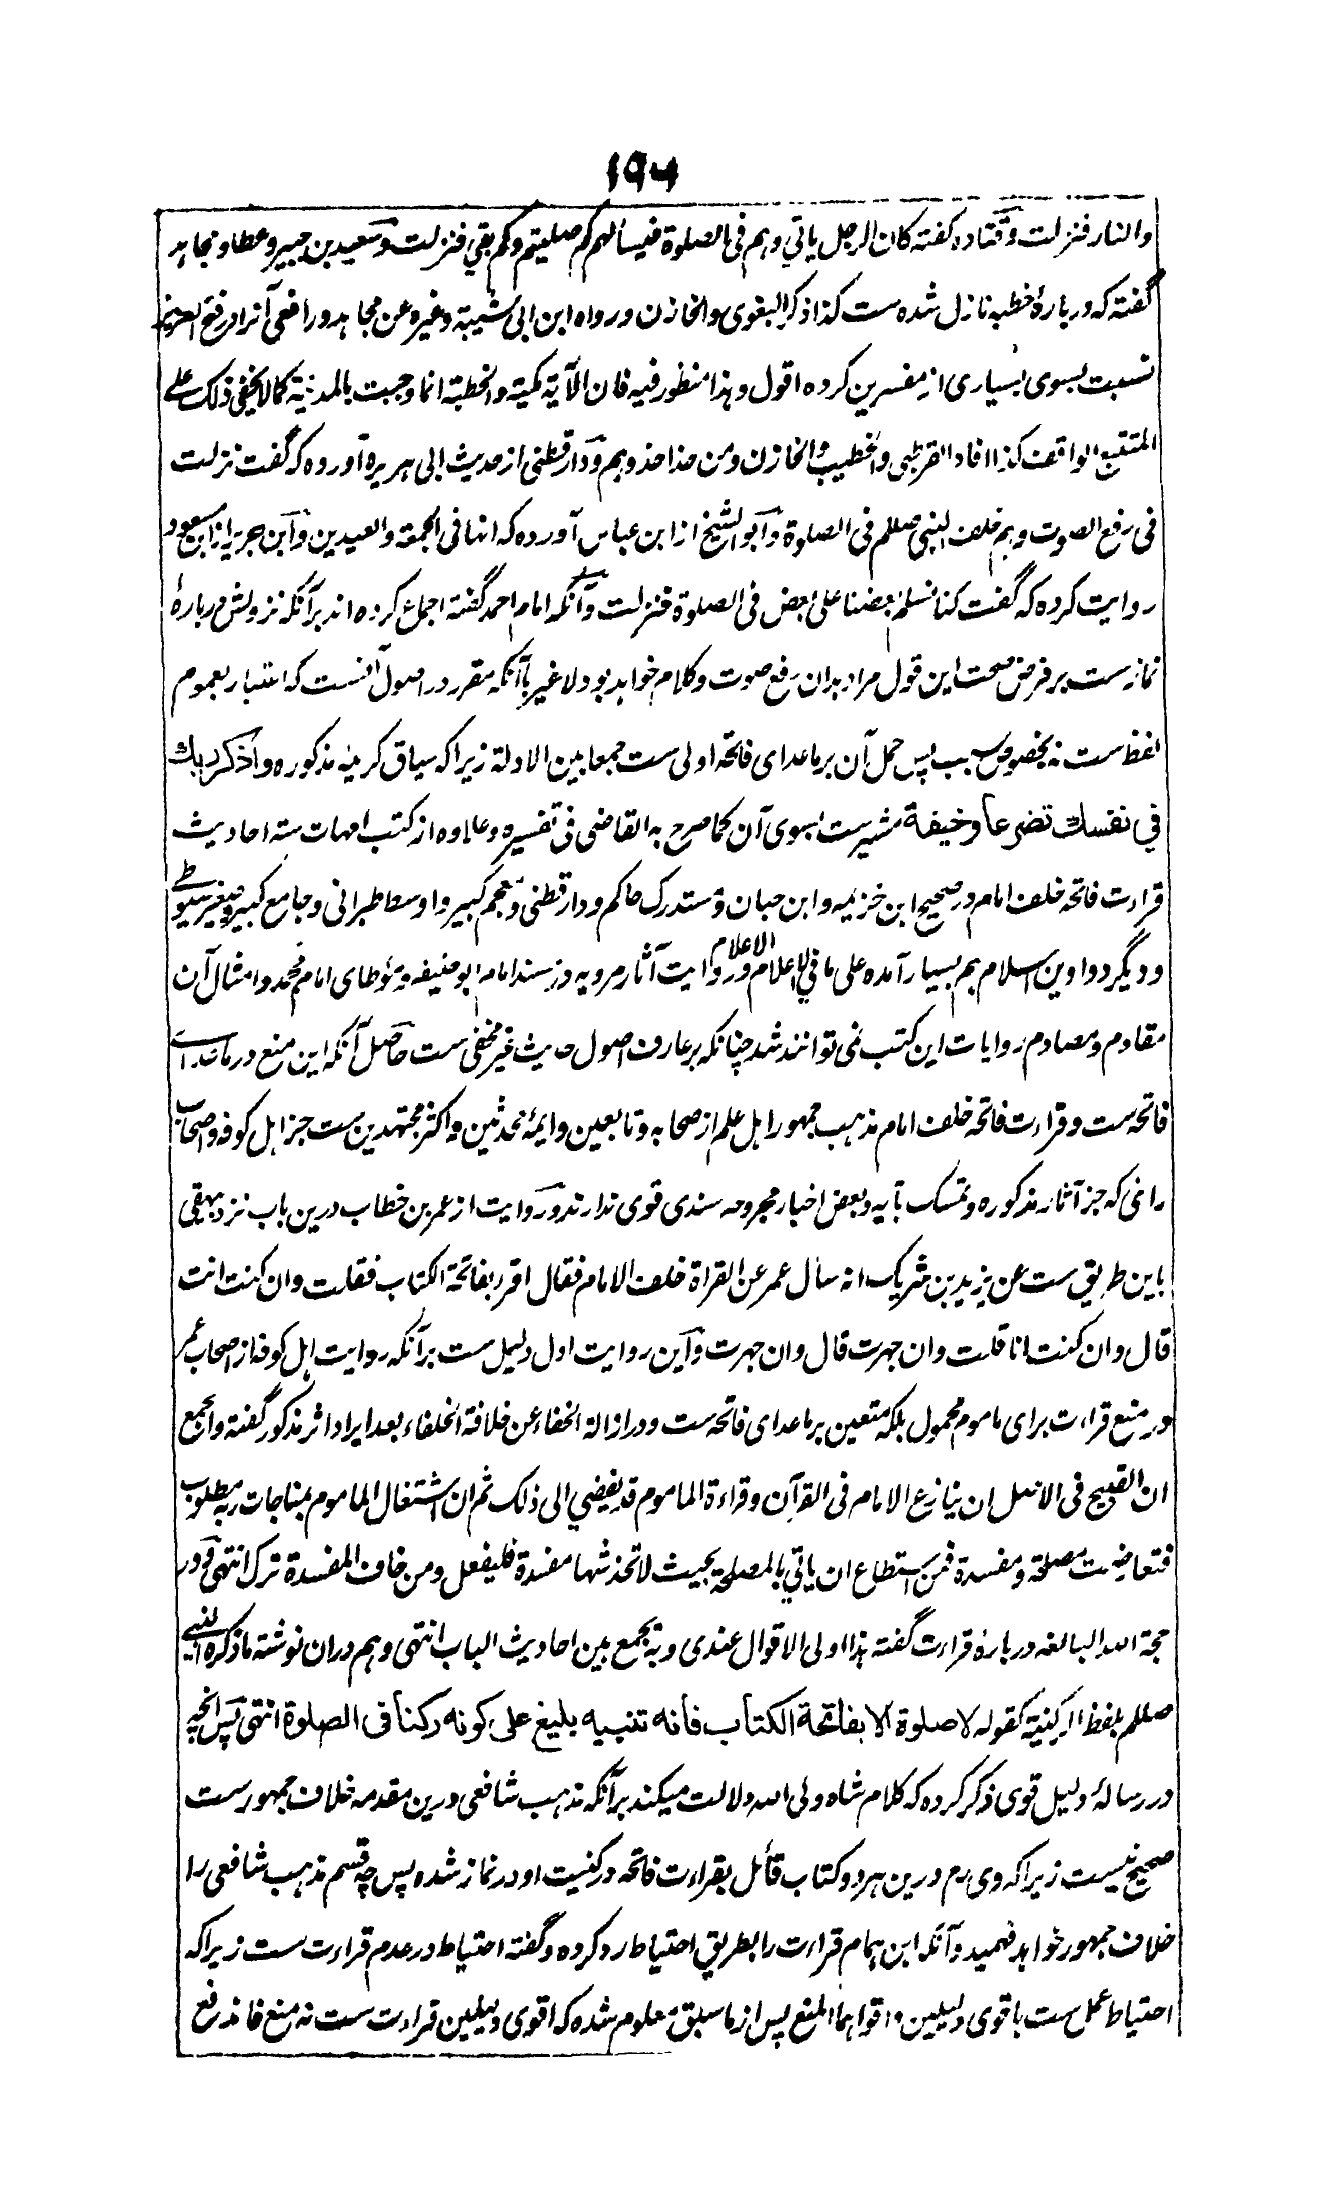 ۱۹۶
والنار فنزلت وقتاده گفته كان الرجل ياتي وهم فى الصلوة فيسألهم كم صليتم وكم بقي فنزلت وسعيد بن جبير وعطا ومجاهد
گفته كه دربارۀ خطبه نازل شده ست كذا ذكر البغوى والخازن ورواه ابن ابى شيبة وغيره عن مجاهد ورافعى آنرا در فتح العزيز
نسبت بسوى بسيارى از مفسرين كرده اقول وهذا منظور فيه فان الآية مكية والخطبة انما وجبت بالمدينة كما لا يخفى ذلك على
المتتبع الواقف كذا افاد القرطبى والخطيب والخازن ومن حذا حذوهم ودارقطنى از حديث ابى هريره آورده كه گفت نزلت
فى رفع الصوت وهم خلف النبى صللم فى الصلوة وابو الشيخ از ابن عباس آورده كه انها فى الجمعة والعيدين وابن جرير از ابن مسعود
روايت كرده كه گفت كنا نسلم بعضنا على بعض فى الصلوة فنزلت وآنكه امام احمد گفته اجماع كرده اند برآنكه نزولش دربارۀ
نماز ست بر فرض صحت اين قول مراد بدان رفع صوت وكلام خواهد بود لا غير باآنكه مقرر در اصول آنست كه اعتبار بعموم
لفظ ست نه بخصوص سبب پس حمل آن بر ماعداى فاتحه اولى ست جمعا بين الادلة زيراكه سياق كريمۀ مذكوره واذكر ربك
في نفسك تضرعا وخيفة مشير ست بسوى آن كما صرح به القاضى فى تفسيره وعلاوه از كتب امهات سته احاديث
قراءت فاتحه خلف امام در صحيح ابن خزيمه وابن حبان ومستدرك حاكم ودارقطنى ومعجم كبير واوسط طبرانى وجامع كبير وصغير سيوطى
وديگر دواوين اسلام هم بسيار آمده على ما في الاعلام الاعلام وروايت آثار مرويه در مسند امام ابو حنيفه ومؤطاى امام محمد وامثال آن
مقادم ومصادم روايات اين كتب نمى توانند شد چنانكه بر عارف اصول حديث غير مخفى ست حاصل آنكه اين منع در ماعداى
فاتحه ست وقراءت فاتحه خلف امام مذهب جمهور اهل علم از صحابه وتابعين وايمۀ محدثين واكثر مجتهدين ست جز اهل كوفه واصحاب
راى كه جز آثار مذكوره وتمسك بآيه وبعض اخبار مجروحه سندى قوى ندارند وروايت از عمر بن خطاب درين باب نزد بيهقى
باين طريق ست عن يزيد بن شريك انه سأل عمر عن القراة خلف الامام فقال اقر بفاتحة الكتاب فقلت وان كنت انت
قال وان كنت انا قلت وان جهرت قال وان جهرت واين روايت اول دليل ست برآنكه روايت اهل كوفه از اصحاب عمر
در منع قراءت براى ماموم محمول بلكه متعين بر ماعداى فاتحه ست ودر ازالة الخفاء عن خلافة الخلفاء بعد ايراد اثر مذكور گفته والجمع
ان القبيح فى الاصل ان ينازع الامام فى القرآن وقراءة الماموم قد يفضي الى ذلك ثم ان اشتغال الماموم بمناجات ربه مطلوب
فتعارضت مصلحة ومفسدة فمن استطاع ان ياتي بالمصلحة بحيث لا تخدشها مفسدة فليفعل ومن خاف المفسدة ترك انتهى ودر
حجة الله البالغه دربارۀ قراءت گفته هذا اولى الاقوال عندى وبه يجمع بين احاديث الباب انتهى وهم دران نوشته ما ذكره النبى
صللم بلفظ الركنية كقوله لا صلوة الا بفاتحة الكتاب فانه تنبيه بليغ على كونه ركنا فى الصلوة انتهى پس آنچه
در رسالۀ دليل قوى ذكر كرده كه كلام شاه ولى الله دلالت ميكند برآنكه مذهب شافعى درين مقدمه خلاف جمهور ست
صحيح نيست زيراكه وى رح درين هر دو كتاب قائل بقراءت فاتحه وركنيت او در نماز شده پس چه قسم مذهب شافعى را
خلاف جمهور خواهد فهميد وآنكه ابن همام قراءت را بطريق احتياط رد كرده وگفته احتياط در عدم قراءت ست زيراكه
احتياط عمل ست باقوى دليلين واقواهما المنع پس از ما سبق معلوم شده كه اقوى دليلين قراءت ست نه منع فاندفع